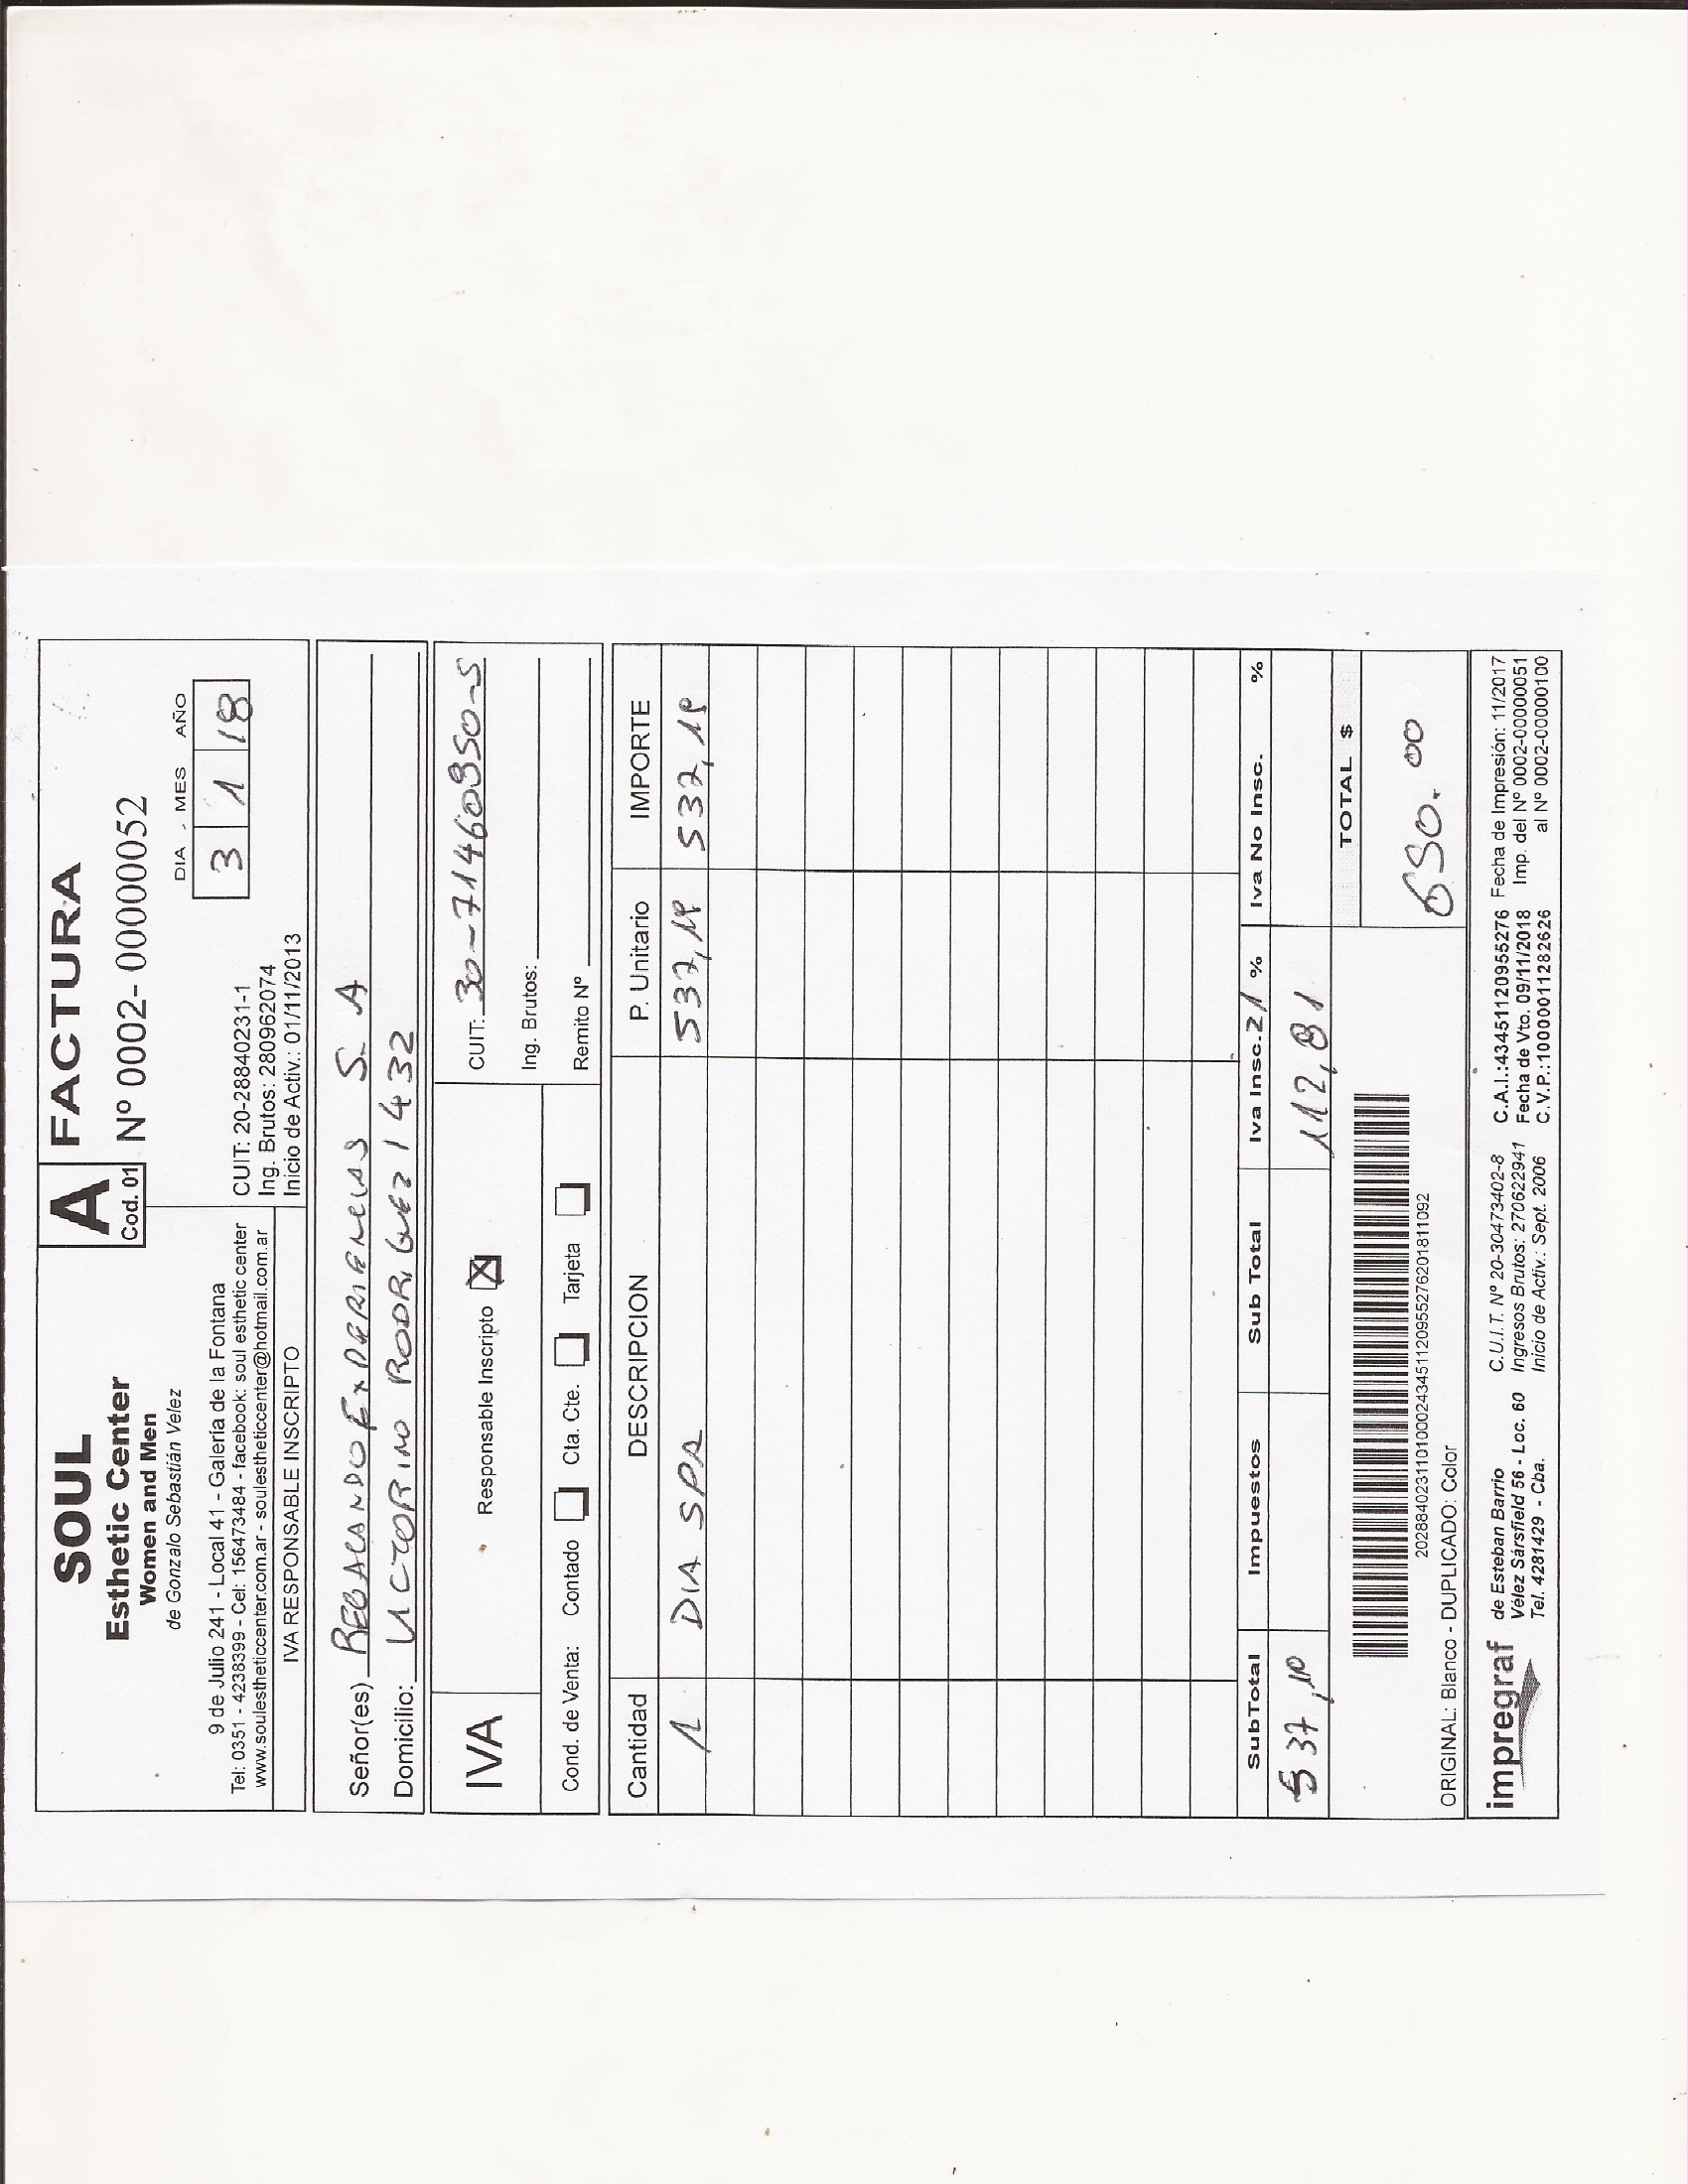 SOUL
Esthetic Center
Women and Men
de Gonzalo Sebastián Velez
9 de Julio 241 - Local 41 - Galería de la Fontana
Tel: 0351 - 4238399 - Cel: 156473484 - facebook: soul esthetic center
www.soulestheticcenter.com.ar - soulestheticcenter@hotmail.com.ar
IVA RESPONSABLE INSCRIPTO
A
Cod. 01
FACTURA
Nº 0002- 00000052
DIA MES AÑO
3 1 18
CUIT: 20-28840231-1
Ing. Brutos: 280962074
Inicio de Activ.: 01/11/2013
Señor(es) REGALANDO EXPERIENCIAS S. A
Domicilio: VICTORINO RODRIGUEZ 1432
IVA Responsable Inscripto X
CUIT: 30-71460950-5
Ing. Brutos:
Remito Nº
Cond. de Venta: Contado Cta. Cte. Tarjeta
Cantidad DESCRIPCION P. Unitario IMPORTE
1 DIA SPA 537,19 537,19
SubTotal Impuestos Sub Total Iva Insc. 21 % Iva No Insc. %
537,19 112,81
TOTAL $
650.00
20288402311010002434511209552762018110​92
ORIGINAL: Blanco - DUPLICADO: Color
impregraf
de Esteban Barrio
Vélez Sársfield 56 - Loc. 60
Tel. 4281429 - Cba.
C.U.I.T. Nº 20-30473402-8
Ingresos Brutos: 270622941
Inicio de Activ.: Sept. 2006
C.A.I.:43451120955276
Fecha de Vto. 09/11/2018
C.V.P.:10000011282626
Fecha de Impresión: 11/2017
Imp. del Nº 0002-00000051
al Nº 0002-00000100